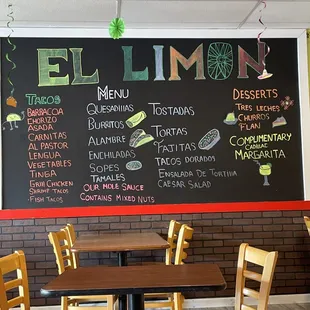 EL LIMON
TACOS
BARBACOA
CHORIZO
ASADA
CARNITAS
AL PASTOR
LENGUA
VEGETABLES
TINGA
SHRIMP TACOS
-FISH TACOS
MENU
QUESADILLAS
BURRITOS
ALAMBRE
ENCHILADAS
SOPES
TAMALES
OUR MOLE SAUCE
CONTAINS MIXED NUTS
TOSTADAS
TORTAS
FAJITAS
TACOS DORADOS
ENSALADA DE TORTILLA
CAESAR SALAD
DESSERTS
TRES LECHES
CHURROS
FLAN
COMPLIMENTARY
CADILLAC
MARGARITA